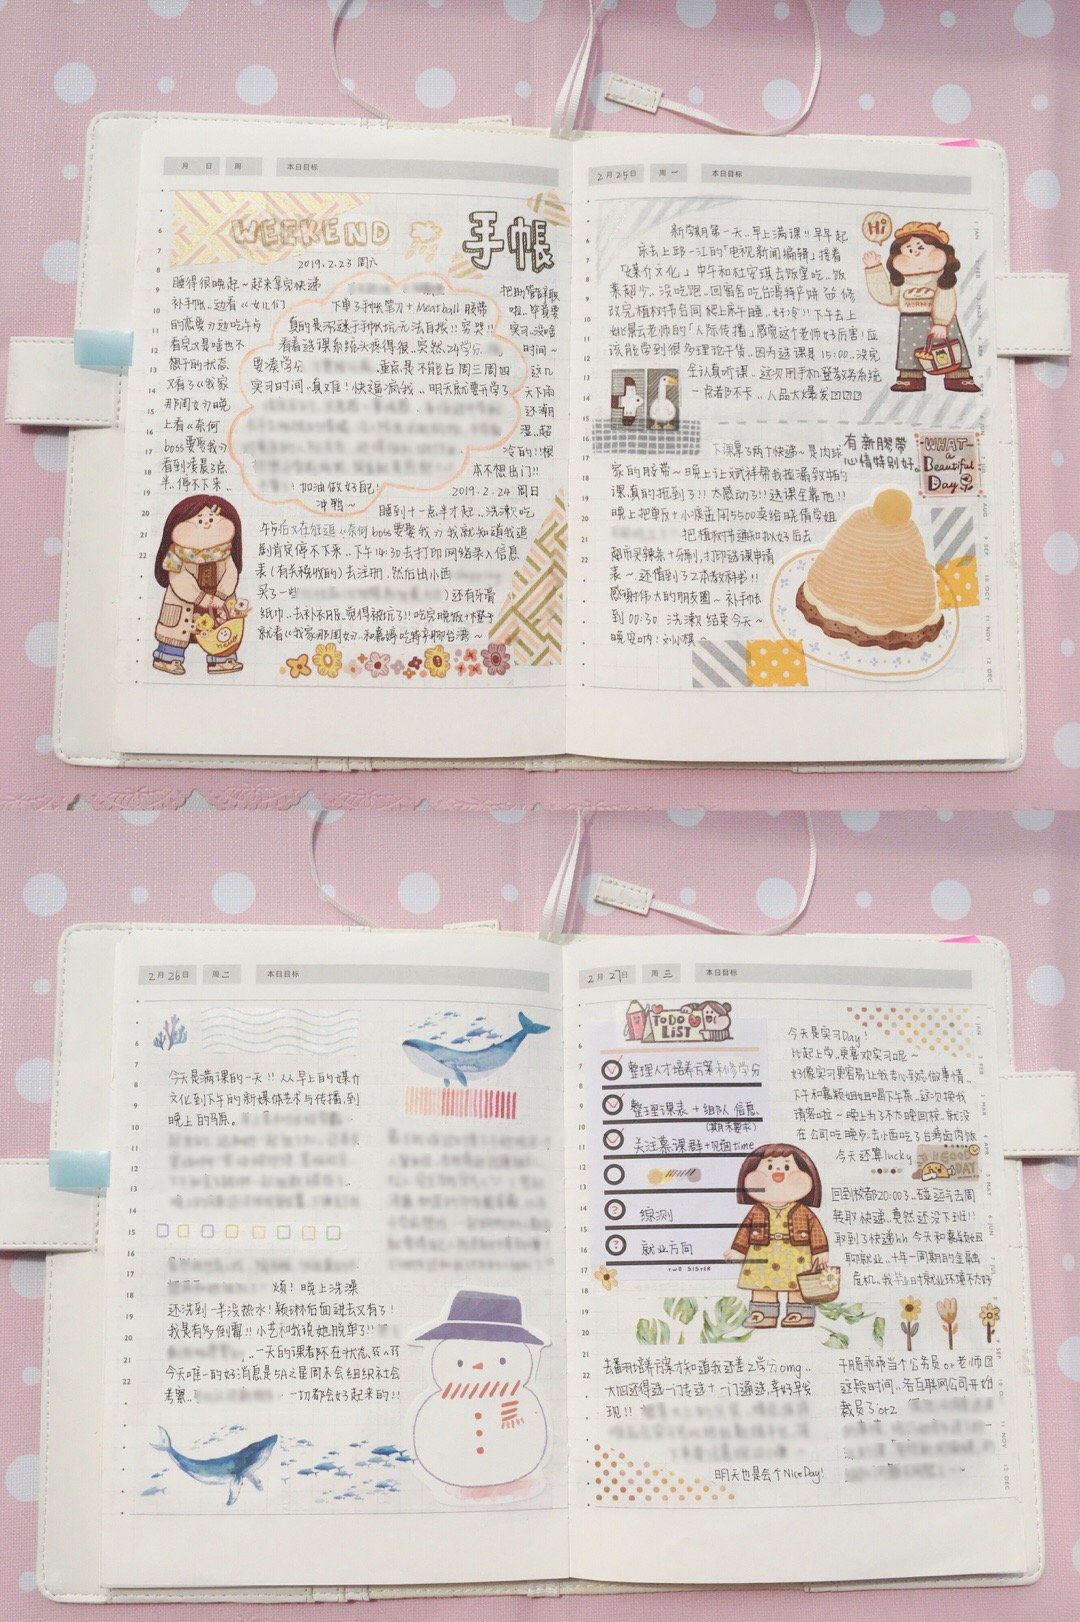 月 日 周 本日目标
WEEKEND 手帐
2019.2.23 周六
睡得很晚起～起来拿完快递
补手帐..边看《女儿们
的恋爱》边吃午饭
看完又是啥也不
想干的状态
又看了《我家
那闺女》晚
上看《奈何
boss要娶我》
看到凌晨3点
半..停不下来..
下单了手帐笔刀+Meatball胶带
真的是沉迷手帐坑无法自拔!!穷哭!!
看着选课系统头疼得很..突然..24学分
要凑学分 重点是不能占周三周四
实习时间..真难!快逼疯我..明天就要开学了
!加油做好自己!
冲鸭～
啦..毕竟要
实习..没啥
时间～
这几
天下雨
还潮
湿..超
冷的!!根
本不想出门!!
2019.2.24 周日
睡到十一点半才起..洗漱吃
午饭后又在狂追《奈何boss要娶我》我就知道我追
剧肯定停不下来..下午14:30去打印网络录入信息
表(有关税收的)去注册,然后出小西
买了一些 )还有牙膏
纸巾..去补衣服..觉得被坑了!!吃完晚饭+橙子
就看《我家那闺女》..和嘉婷吃特产聊台湾～
2月25日 周一 本日目标
新学期第一天..早上满课!!早早起
床去上邱一江的「电视新闻编辑」接着
「媒介文化」中午和杜安琪去饭堂吃..饭
菜超少..没吃跑..回宿舍吃台湾特产饼
改完植村秀合同 爬上床午睡..好冷!!下午去上
姚景云老师的「人际传播」感觉这个老师好厉害!应
该能学到很多理论干货..因为选课是15:00..没完
全认真听课..这次用手机登教务系统
一点都不卡..人品大爆发
Hi
下课拿了两个快递～是肉球
家的胶带～晚上让文斌祥帮我捡漏敦煌的
课..真的抢到了!!太感动了!!选课全靠他!!
晚上把单反+小滚金闪5500卖给晓倩学姐
把植村秀通知拟好后去
超市买辣条+牙刷,打印选课申请
表～..还借到了2本教科书!!
感谢伟大的朋友圈～补手帐
到00:30 洗漱 结束今天～
晚安呐:刘小棋～
有新胶带
心情特别好。
WHAT
a
Beautiful
Day
2月26日 周二 本日目标
今天是满课的一天!!从早上的媒介
文化到下午的新媒体艺术与传播,到
晚上的马原。
烦!晚上洗澡
还洗到一半没热水!颖琳后面进去又有了!
我是有多倒霉!!小艺和我说她脱单了!!
..一天的课都不在状态
今天唯一的好消息是5A之星周末会组织社会
考察.. 一切都会好起来的!!
2月27日 周三 本日目标
TO DO
LIST
整理人才培养方案未修学分
整理课表+组队信息
(期末要求)
关注慕课群+见面time
综测
就业方向
TWO SISTER
今天是实习Day!
比起上学..更喜欢实习呢～
好像实习更容易让我专心致志做事情..
下午和嘉颖姐姐喝下午茶..这次换我
请客啦～晚上6不太晚回校..就没
在公司吃晚饭..去小西吃了台湾卤肉饭
今天还算lucky
GOOD
DAY
回到校都20:00了..碰运气去周
转取快递..竟然还没下班!!
取到了快递hh 今天和嘉颖姐
聊就业..十年一周期的金融
危机..我毕业时就业环境不太好
去翻开培养方案才知道我还差2学分omg..
大四还得选一门专选+一门通选,幸好早发
现!!
干脆乖乖当个公务员or老师
这段时间..各互联网公司开始
裁员了orz
明天也是会个NiceDay!